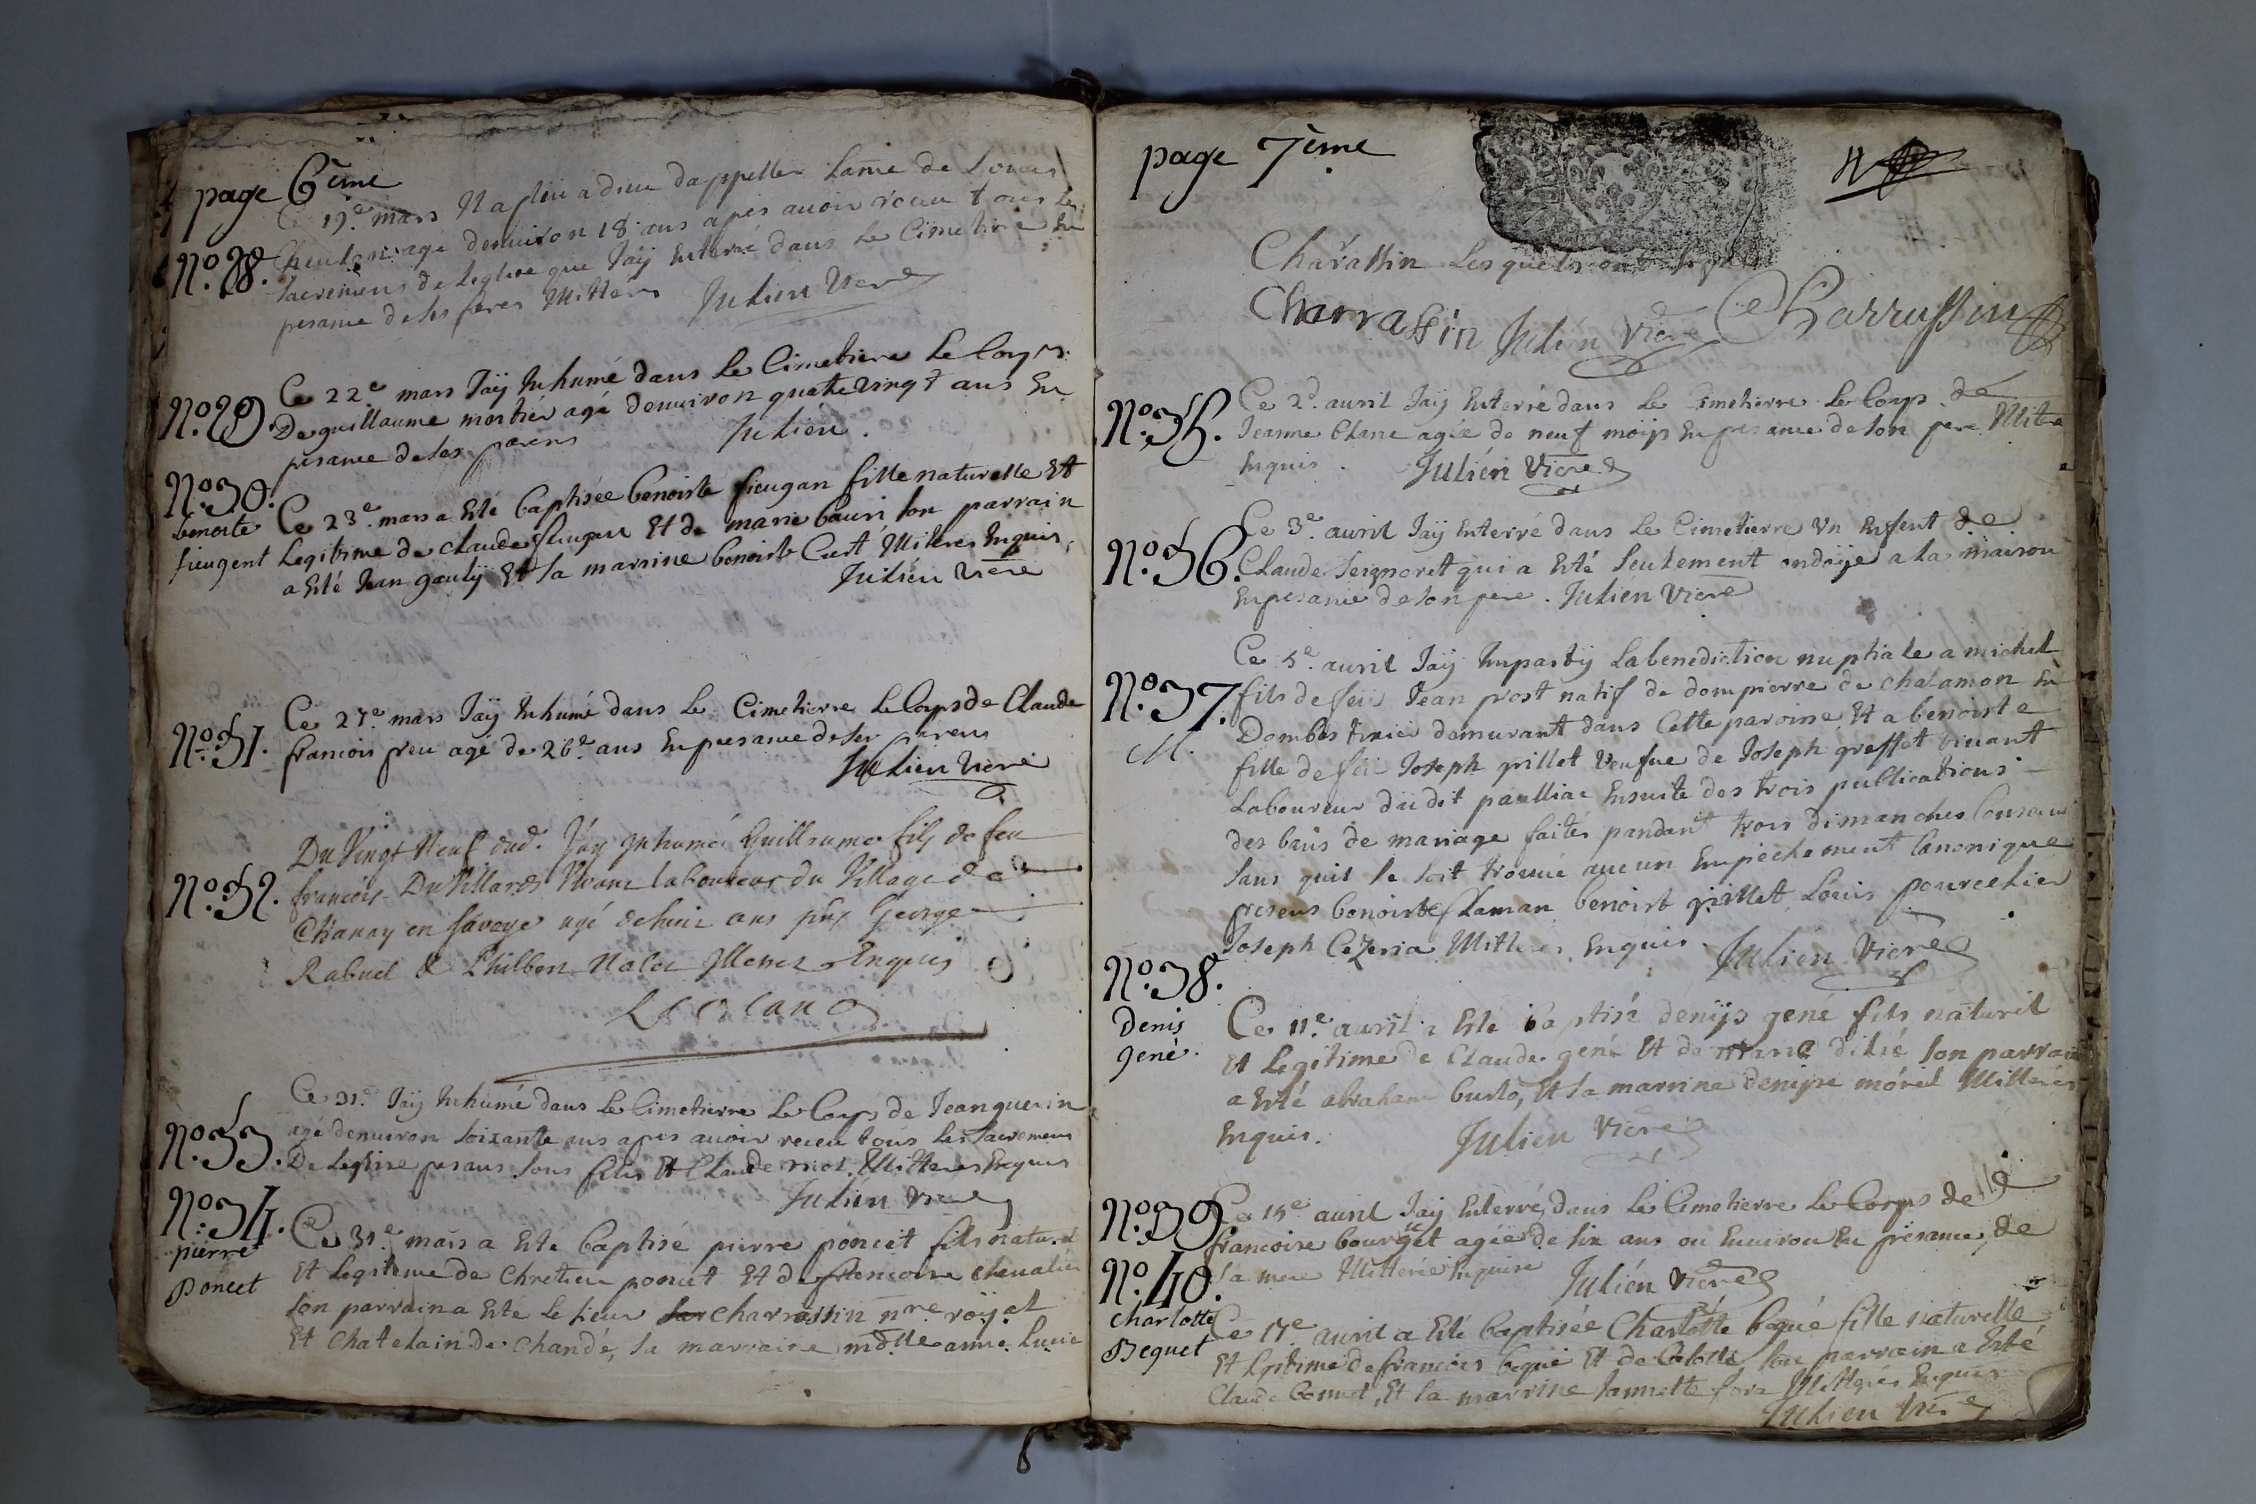 page 6ème
Ce 19e mars Il a plüe a dieu dappeller Lame de Louis
No. 28.
agé denuiron 18 ans apres auoir receu tous les
Sacremens de Leglise que Jäy Enterré dans Le Cimetiere En
presance de ses freres Illitteres Julien Viere
No. 29.
Ce 22e mars Jäy Inhumé dans Le Cimetiere Le Corps
De guillaume mortier agé denuiron quatre vingt ans En
presance de ses parens Julien
No. 30.
benoite
fieugent
Ce 23e mars a Esté baptisée benoiste fieugan fille naturelle Et
Legitime de claude fieugan Et de marie bauri son parrain
a Esté Jean gaulÿ Et sa marrine benoiste Curt Illiteres Enquis
Julien Viere
No. 31.
Ce 27e mars Jäy Inhumé dans Le Cimetierre Le Corps de Claude
francois freu agé de 26e ans En presance de ses parens
Julien Viere
No. 32.
Du Vingt Neuf dud. J'ay Inhumé Guillaume fils de feu
francois Du Villards Vivant laboureur du Village de
Chanay en Savoye agé de huit ans pnts George
Rabuel & Philbert Nalet Illeterez Enquis
No. 33.
Ce 31e Jäy Inhumé dans Le Cimetierre Le Corps de Jean guerin
agé denuiron soixante ans apres auoir receu tous Les Sacremens
De Leglise presans sons fils Et Claude Illitteres Enquis
Julien Viere
No. 34.
pierre
Poncet
Ce 31e mars a Esté baptisé pierre poncet fils naturel
Et Legitime de Chretien poncet Et de francoise Chevalier
son parrain a Esté Le sieur charrassin nre. röyal
Et Chatelain De Chandé, sa marraine mdlle anne Lucie
page 7ème
Charassin Lesquels ont signé
Charrassin Julién Viere Charrassin
No. 35.
Ce 2d. auril Jäy Enterré dans Le Cimetierre Le Corps de
Jeanne blanc agée de neuf moijs En presance de son pere Illitere
Enquis. Julién Viere
No. 36.
Ce 3e auril Jäy Enterré dans Le Cimetierre Vn Enfent de
Claude Seignoret qui a Esté seulement ondoyé a la maison
En presance de son pere. Julién Viere
No. 37.
M.
Ce 5e auril Jäy Imparty La benediction nuptiale a michel
fils de feü Jean prost natif de dompierre de chalamon En
Dombes tixier demurant dans Cette paroisse Et a benoiste
fille de feü Joseph grillet Veufue de Joseph greffet viuant
Laboureur düdit paulliac Ensuite des trois publications
des bans de mariage faites pandant trois dimanches
sans quil se soit trouué aucun Empechement Canonique
presens benoist flaman benoist grillet Loüis pourcelier
Joseph Cezeria Illitteres Enquis. Julién Viere
No. 38.
Denis
gené.
Ce 11e auril a Esté baptisé denijs gené fils naturel
Et Legitime de Claude gené Et de marie son parrain
a Esté abraham Et sa marrine denijse morel Illitteres
Enquis. Julien Viere
No. 39.
Ce 15e auril Jäy Enterré dans Le Cimetierre Le Corps de
francoise bourget agée de six ans ou Enuiron En presance de
sa mere Illitterée Enquise Julién Viere
No. 40.
charlotte
Bequet
Ce 17e auril a Esté baptisée Charlotte bequé fille naturelle
Et Legitime de francois bequé Et de son parrain a Esté
Claude bonnet, Et la marrine Jannette Illitterés Enquis
Julien Viere